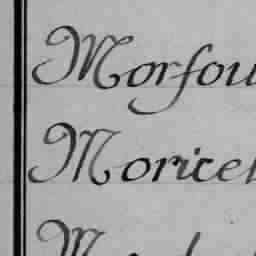 Morfou
Moricel